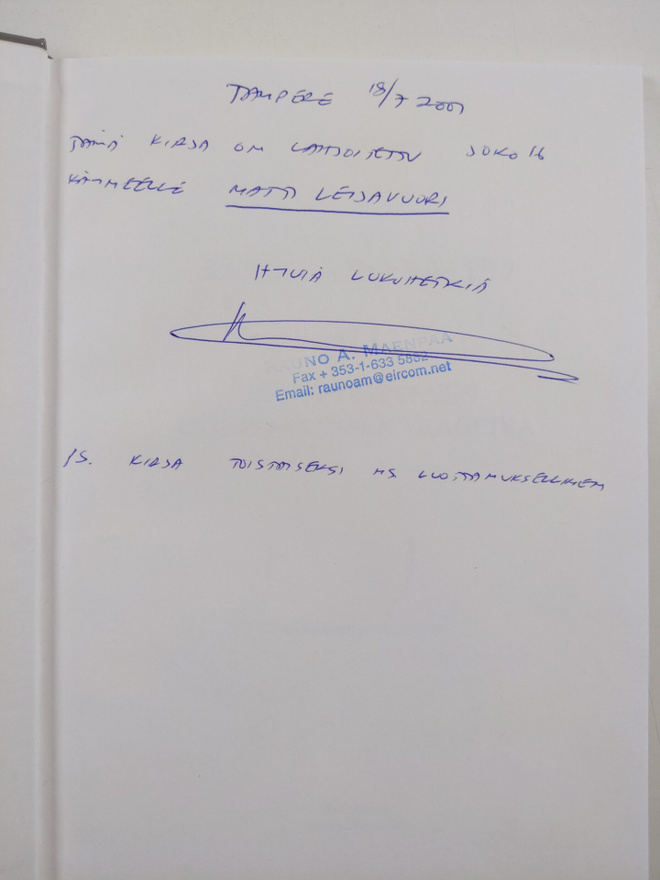 TAMPERE 18/7 2001
TÄMÄ KIRJA ON LAHJOITETTU
MATTI LEISAVUORI
LUKUHETKIÄ
RAUNO A. MAENPAA
Fax + 353-1-633 5862
Email: raunoam@eircom.net
PS. KIRJA TOISTAISEKSI NS. LUOTTAMUKSELLINEN